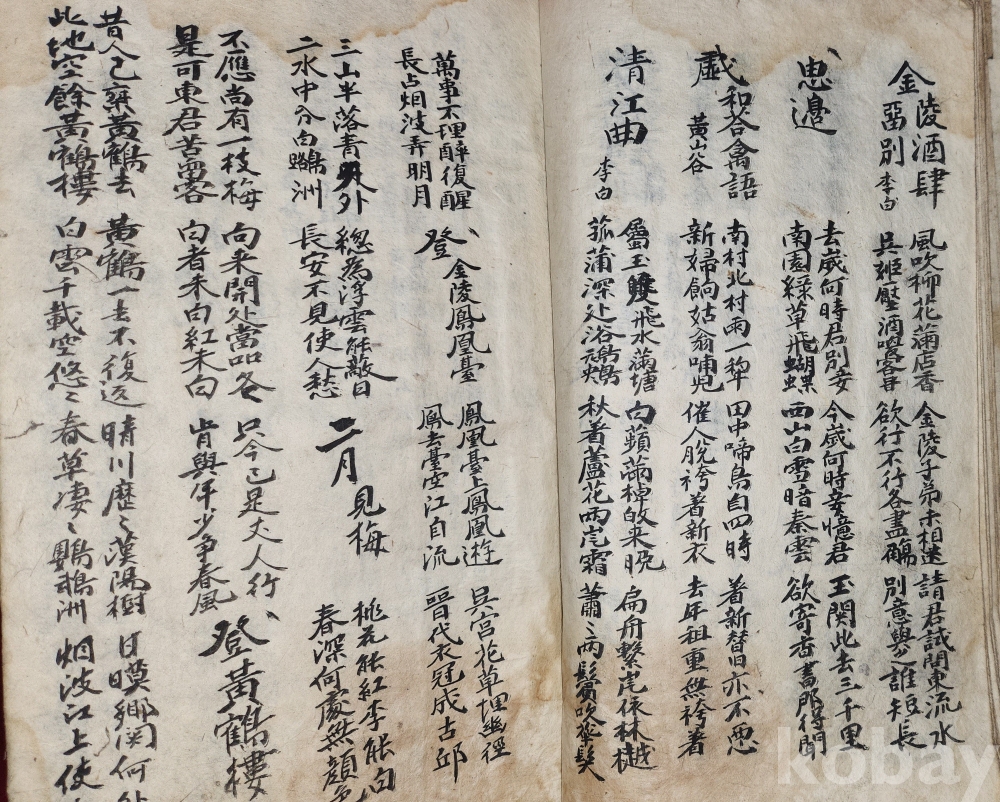 金陵酒肆
畱別 李白
風吹柳花滿店香
吳姬壓酒喚客甞
金陵子弟来相送
欲行不行各盡觴
請君試問東流水
別意與之誰短長
思邊
去歲何時君別妾
南園緑草飛蝴蝶
今歲何時妾憶君
西山白雪暗秦雲
玉関此去三千里
欲寄音書那得聞
戲和答禽語
黃山谷
南村北村雨一犂
新婦餉姑翁哺児
田中啼鳥自四時
催人脱袴着新衣
着新替旧亦不悪
去年租重無袴着
清江曲 李白
屬玉雙飛水滿塘
菰蒲深处浴鴛鴦
白蘋滿棹皈来晩
秋着蘆花両岸霜
扁舟繫岸依林樾
蕭〻両鬢吹華髪
萬事不理醉復醒
長占烟波弄明月
登金陵鳳凰臺
鳳凰臺上鳳凰遊
鳳去臺空江自流
吳宮花草埋幽徑
晋代衣冠成古邱
三山半落青天外
二水中分白鷺洲
總為浮雲能蔽日
長安不見使人愁
二月見梅
桃花能紅李能白
春深何處無顔色
不應尚有一枝梅
是可東君苦畱客
向来開处當品冬
白者未白紅未白
只今已是丈人行
肯與年少争春風
登黃鶴樓
昔人已乗黃鶴去
此地空餘黃鶴樓
黃鶴一去不復返
白雲千載空悠〻
晴川歷〻漢陽樹
春草凄〻鸚鵡洲
日暮郷関何处
烟波江上使
kobay